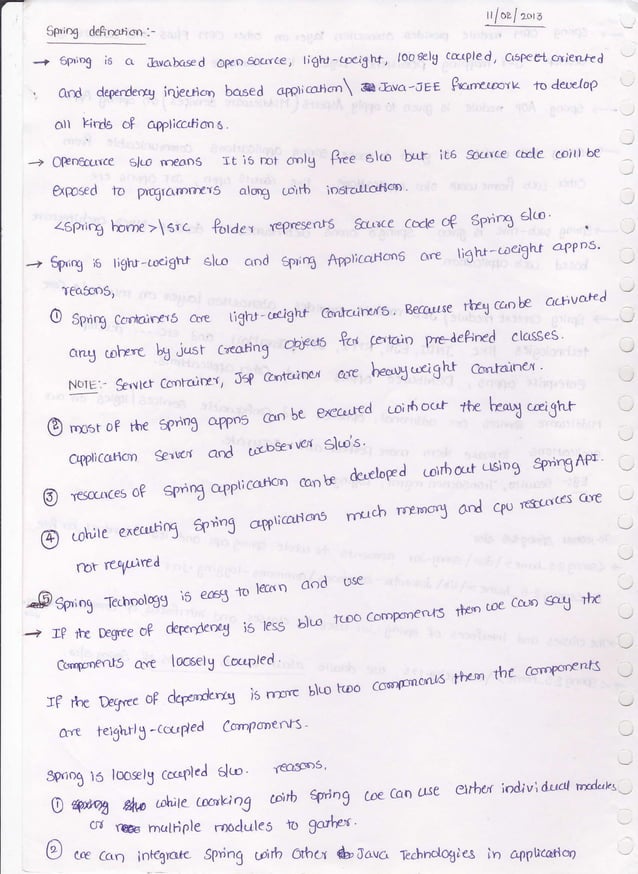 11/02/2013
Spring defination:-
→ Spring is a Java based open source, light-weight, loosely coupled, aspect oriented
and dependency injection based application\ Java-JEE framework to develop
all kinds of applications.
→ Opensource s/w means It is not only free s/w but its source code will be
exposed to programmers along with installation.
<spring home>\src folder represents source code of spring s/w.
→ Spring is light-weight s/w and spring Applications are light-weight appns.
reasons,
① Spring Containers are light-weight Containers. Because they can be activated
any where by just creating objects for certain pre-defined classes.
NOTE:- Servlet container, Jsp container are heavy weight container.
② most of the spring appns can be executed without the heavy weight
application Server and webserver s/w's.
③ resources of spring application can be developed without using spring API.
④ while executing spring applications much memory and cpu resources are
not required
⑤ Spring Technology is easy to learn and use
→ If the Degree of dependency is less b/w two components then we can say the
Components are loosely Coupled.
If the Degree of dependency is more b/w two components then the components
are teightly-coupled Components.
Spring is loosely coupled s/w. reasons,
① while working with spring we can use either individual modules
or multiple modules to gather.
② we can integrate spring with other Java Technologies in application